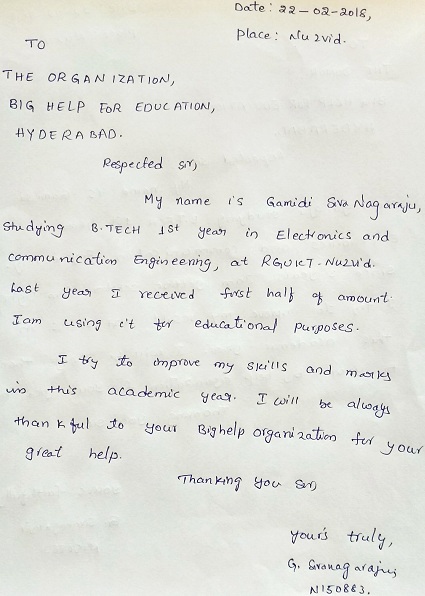 Date: 22-02-2018,
Place: Nuzvid.
TO
THE ORGANIZATION,
BIG HELP FOR EDUCATION,
HYDERABAD.
Respected sir,
My name is Gamidi Siva Nagaraju,
studying B.TECH 1st year in Electronics and
communication Engineering, at RGUKT-Nuzvid.
Last year I received first half of amount.
I am using it for educational purposes.
I try to improve my skills and marks
in this academic year. I will be always
thankful to your Bighelp organization for your
great help.
Thanking you sir,
yours truly,
G. Sivanagaraju,
N150883.